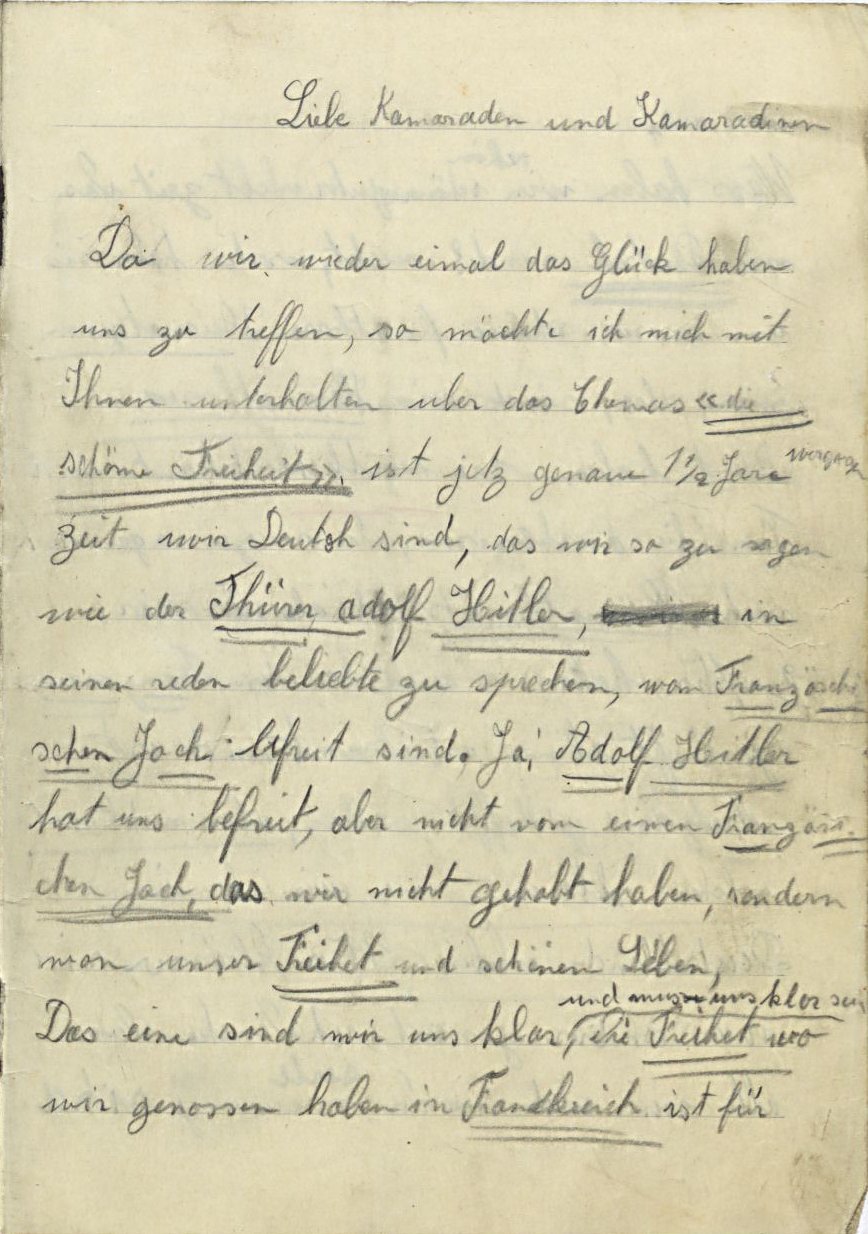 Liebe Kamaraden und Kamaradinen
Da wir wieder eimal das Glück haben
uns zu treffen, so möchte ich mich mit
Ihnen unterhalten uber das Themas «die
schöne Freiheit». ist jetz genaue 1 1/2 Jare
Zeit wir Deutsh sind, das wir so zu sagen
wie der Fhürer adolf Hitler, in
seinen reden beliebte zu sprechen, wom Französchi
schen Joch befreit sind. Ja, Adolf Hitler
hat uns befreit, aber nicht vom einen Französi
chen Joch, das wir nicht gehabt haben, sondern
won unser Freihet und schönen Leben,
und muss uns klar sein
Das eine sind wir uns klar, die Freihet wo
wir genossen haben in Frankreich ist für